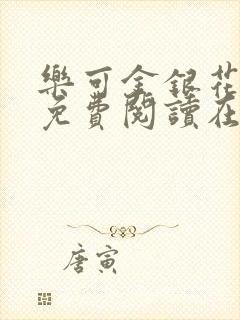 樂可金銀花
免費閱讀在
唐寅